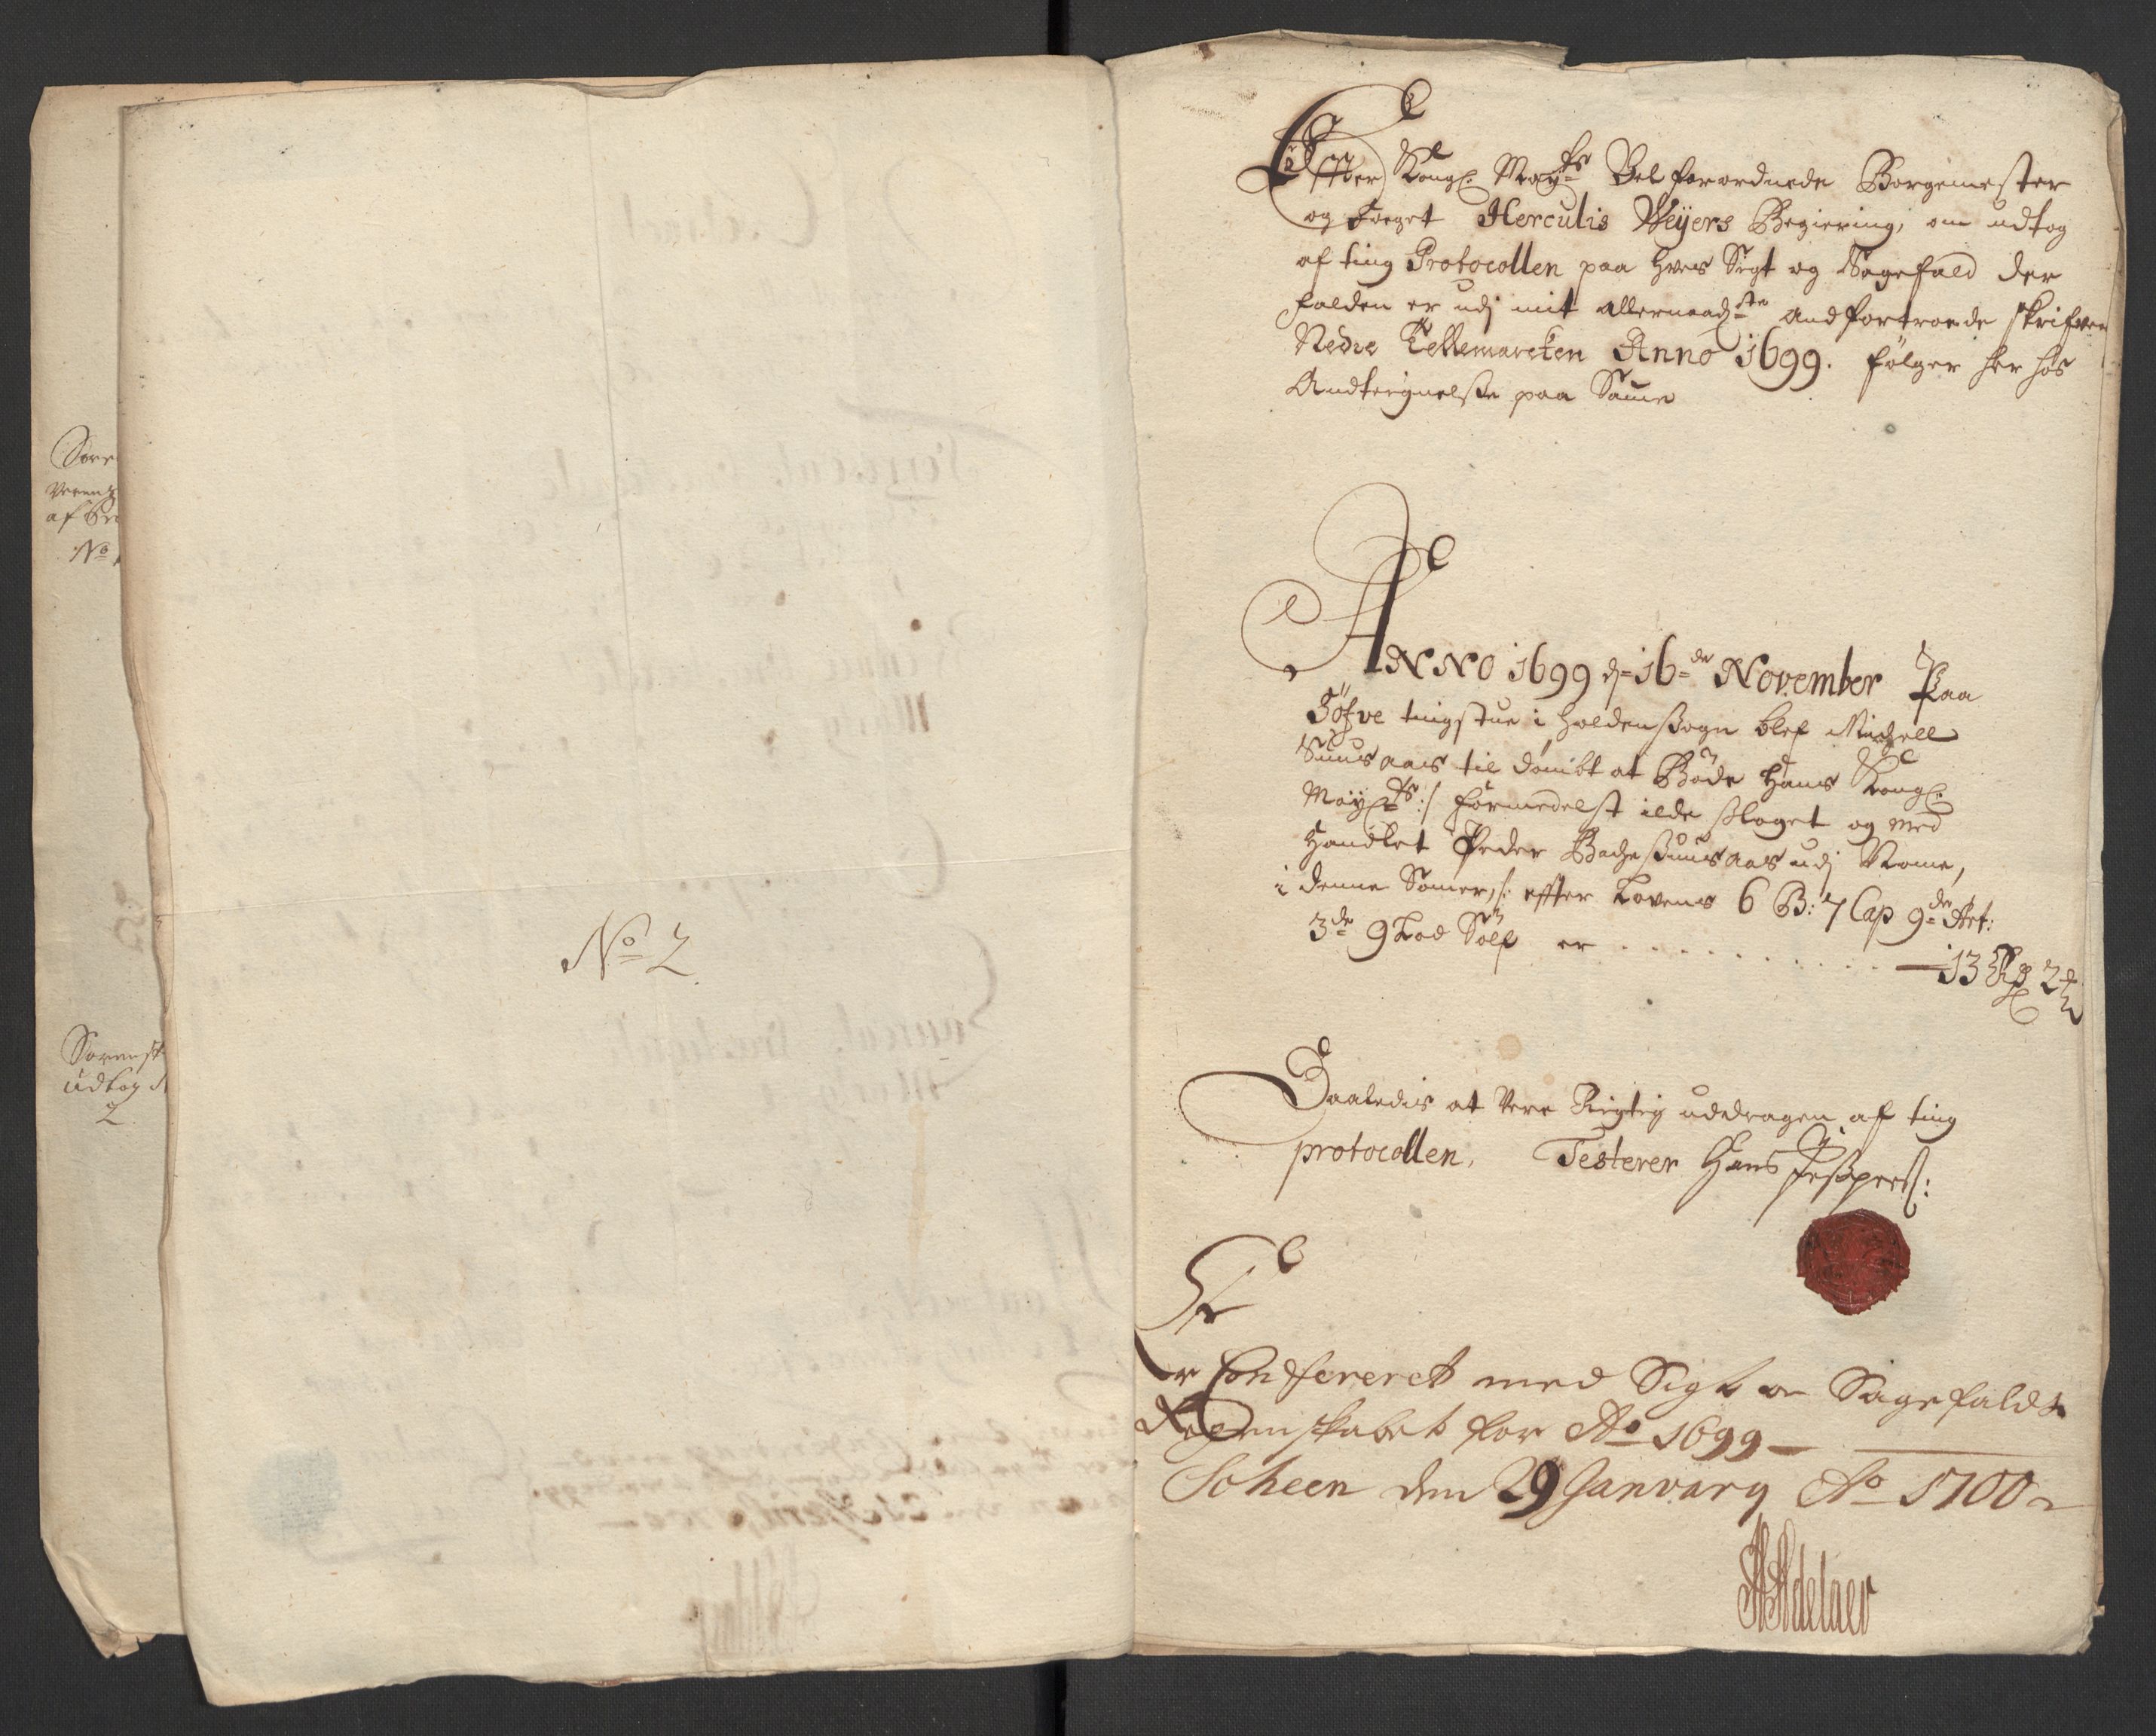 Søre
af
No
Sørenst
udtog
2
No 2
Effter Kongl. Mayts Vel forordnede Borgemester
og foeget Herculis Weyers Begiering, om udtog
af ting Protocollen paa hves Sigt og Sagefald der
falden er udj mit allernaadste andfortroede skrifver
Nedre Tellemarcken Anno 1699. følger her hos
Andteignelsse paa Samme
ANNO 1699 d 16de November Paa
tingstue i Holden Sogn blef
til dømbt at Bøde Hans Kongl.
Mayts :/ formedelst ilde slaget og med
Handlet Peder udj
i denne Somer, /: effter Lovens 6 B: 7 Cap 9de Art:
3de 9 Lod Sølf er - 13 Rd 2
Saaledis at Vere Rigtig uddragen af ting
protocollen, Testerer Hans Jesspers:
Er Confereret med Sigt og Sagefalds
Regenskabet for Ao 1699
Scheen den 29 January Ao 1700
Adelaer